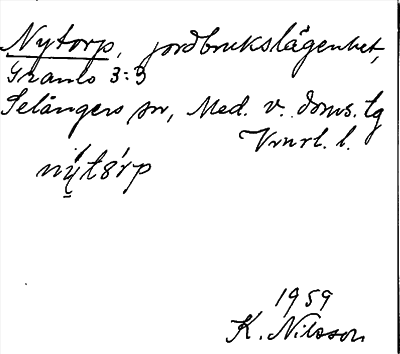 Nytorp, jordbrukslägenhet,
Granlo 3:3
Selångers sn, Med. v. doms. tg
Vnrl. l.
nýtórp
1959
K. Nilsson